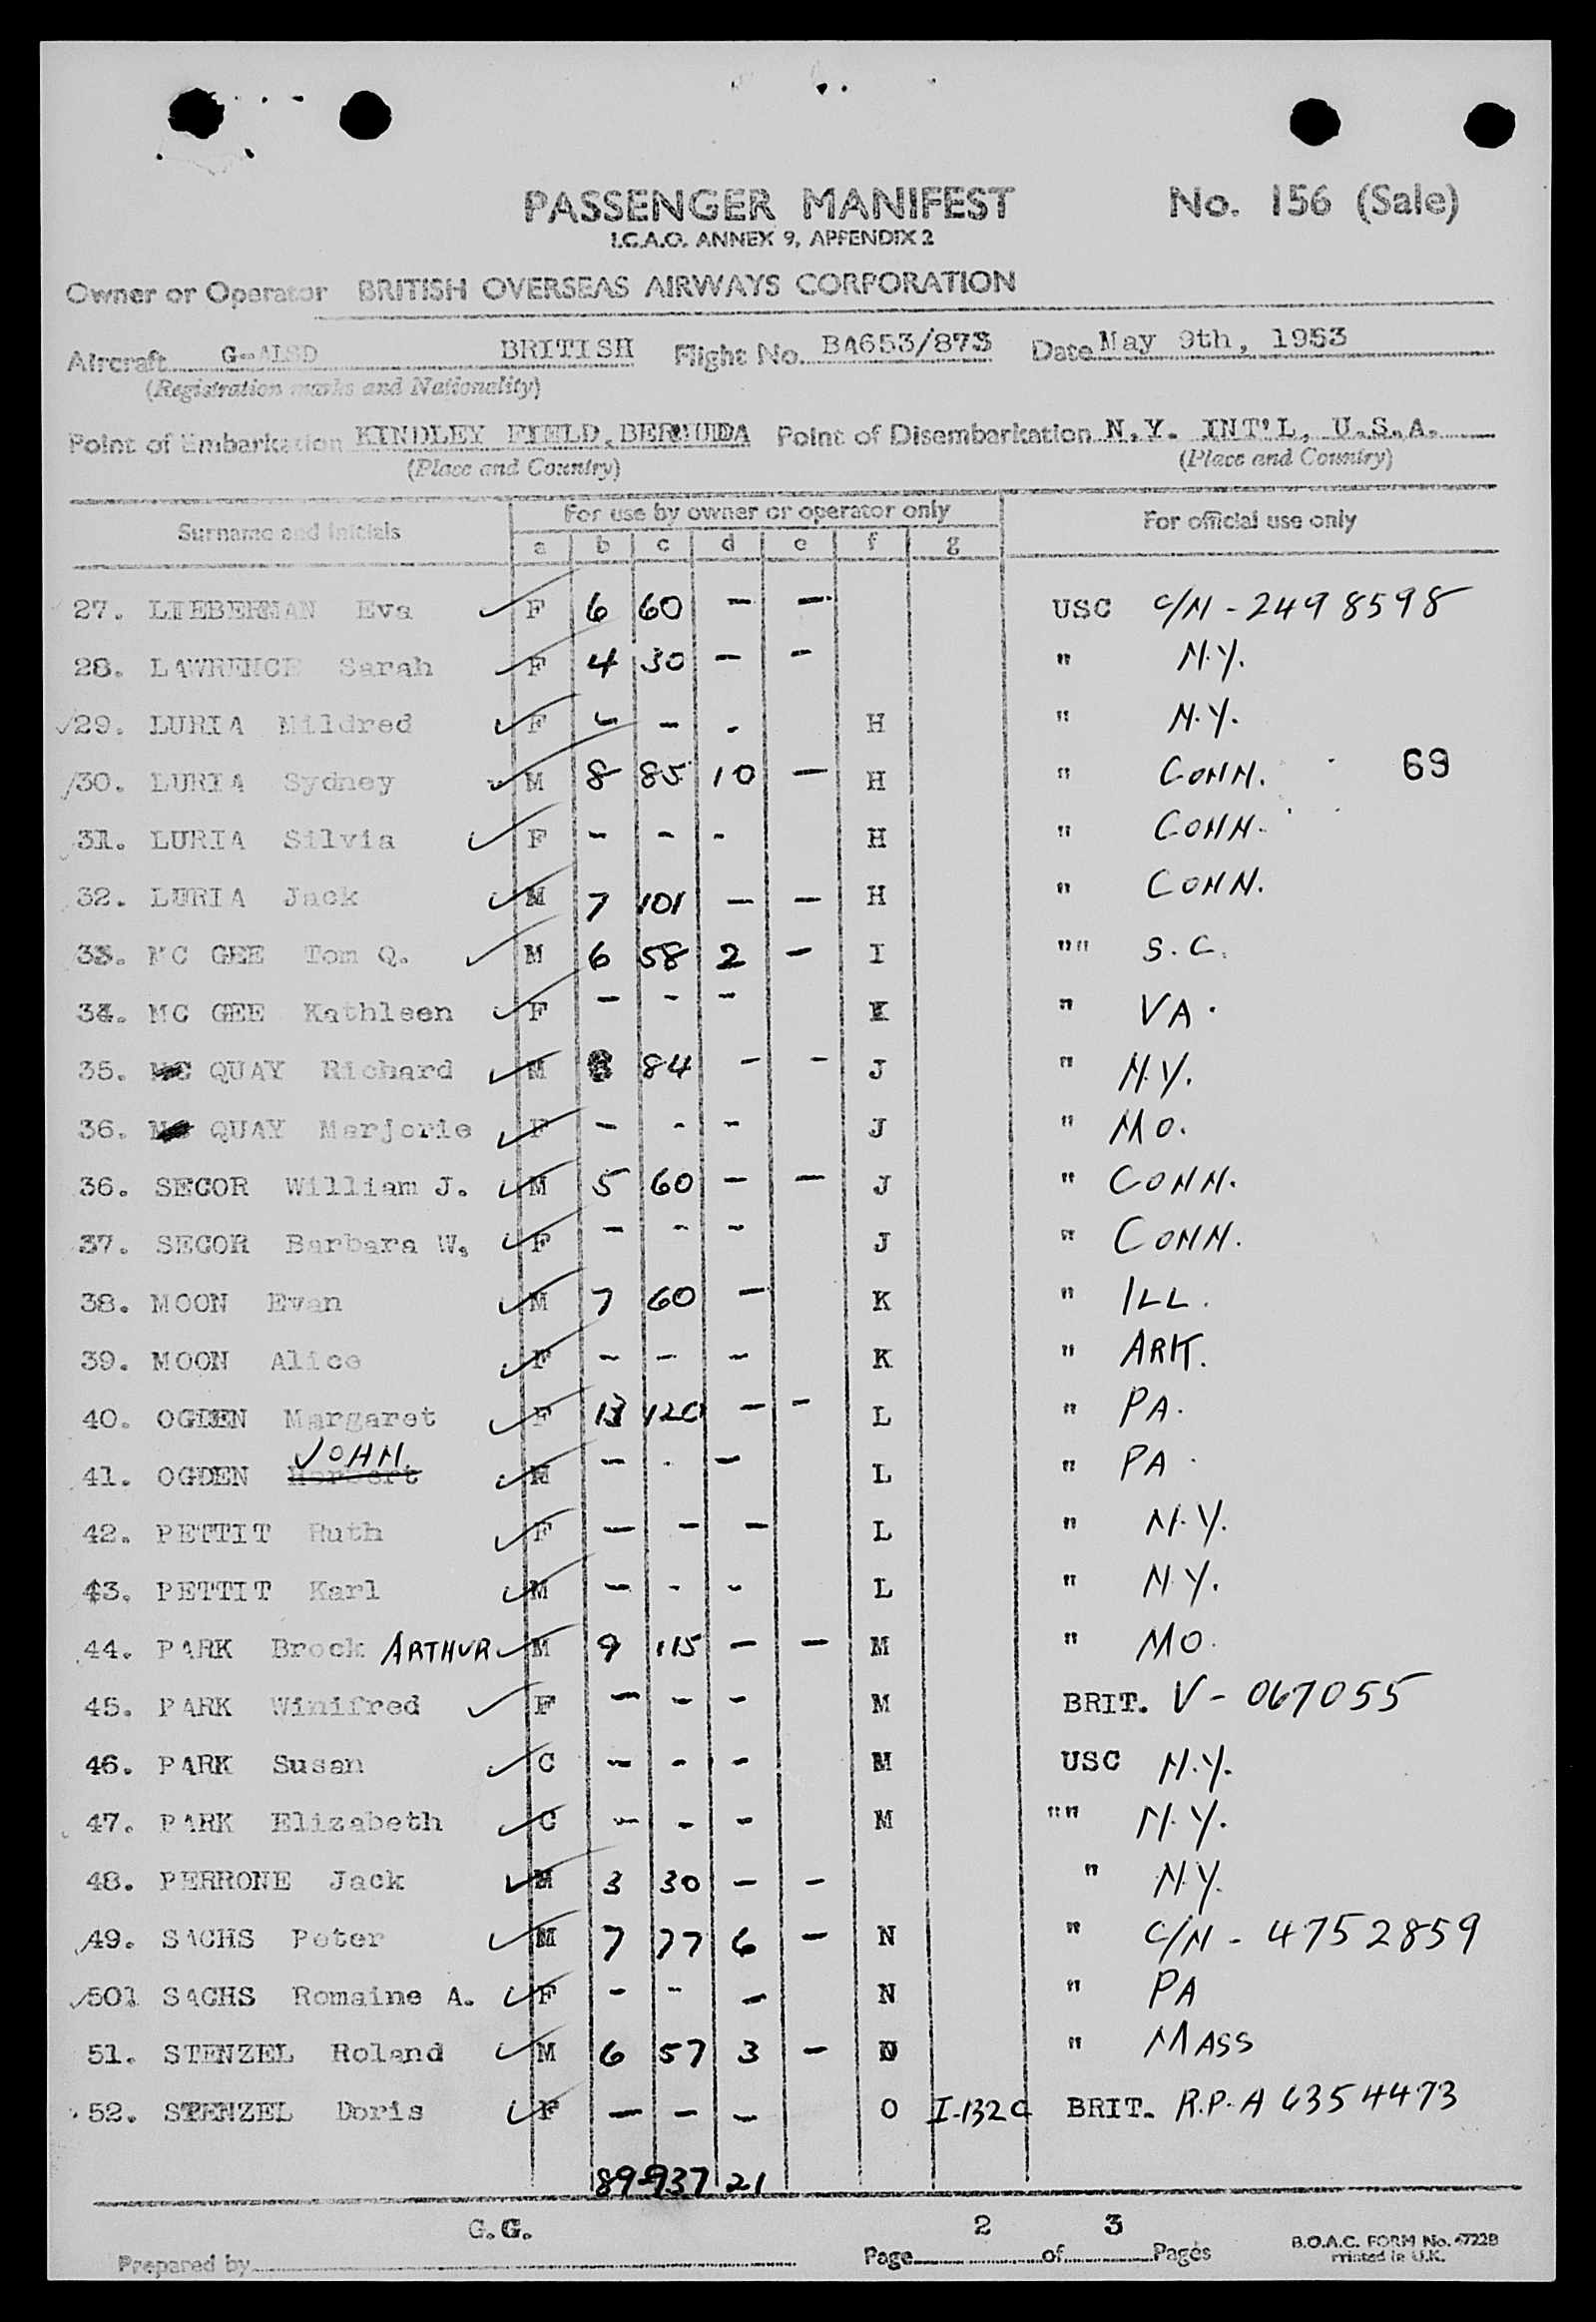 PASSENGER MANIFEST No. 156 (Sale)
I.C.A.O. ANNEX 9, APPENDIX 2
Owner or Operator BRITISH OVERSEAS AIRWAYS CORPORATION
Aircraft G-ALSD BRITISH Flight No. BA653/873 Date May 9th, 1953
(Registration marks and Nationality)
Point of Embarkation KINDLEY FIELD, BERMUDA Point of Disembarkation N.Y. INT'L, U.S.A.
(Place and Country) (Place and Country)
Surname and initials For use by owner or operator only For official use only
a b c d e f g
27. LIEBERMAN Eva F 6 60 - - USC C/N - 2498598
28. LAWRENCE Sarah F 4 30 - - " N.Y.
29. LURIA Mildred F - - - H " N.Y.
30. LURIA Sydney M 8 85 10 - H " CONN. 69
31. LURIA Silvia F - - - H " CONN.
32. LURIA Jack M 7 101 - - H " CONN.
33. MC GEE Tom Q. M 6 58 2 - I "" S.C.
34. MC GEE Kathleen F - - - " VA.
35. MC QUAY Richard M 84 - - J " N.Y.
36. QUAY Marjorie F - - - J " MO.
36. SECOR William J. M 5 60 - - J " CONN.
37. SECOR Barbara W. F - - - J " CONN.
38. MOON Evan M 7 60 - K " ILL.
39. MOON Alice F - - - K " ARK.
40. OGDEN Margaret F 13 120 - - L " PA.
JOHN
41. OGDEN Herbert M - - - L " PA.
42. PETTIT Ruth F - - - L " N.Y.
43. PETTIT Karl M - - - L " N.Y.
44. PARK Brock ARTHUR M 9 115 - - M " MO.
45. PARK Winifred F - - - M BRIT. V - 067055
46. PARK Susan C - - - M USC N.Y.
47. PARK Elizabeth C - - - M "" N.Y.
48. PERRONE Jack M 3 30 - - " N.Y.
49. SACHS Peter M 7 77 6 - N " C/N - 4752859
50. SACHS Romaine A. F - - - N " PA
51. STENZEL Roland M 6 57 3 - O " MASS
52. STENZEL Doris F - - - O I-132C BRIT. R.P.A 6354473
89 937 21
G.G. 2 3
Prepared by Page of Pages
B.O.A.C. FORM No. 4722B
Printed in U.K.